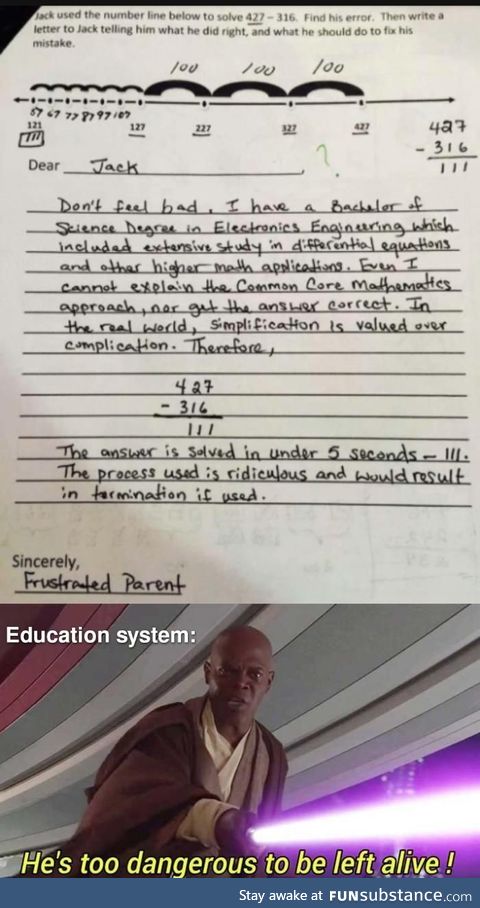 Jack used the number line below to solve 427 – 316. Find his error. Then write a
letter to Jack telling him what he did right, and what he should do to fix his
mistake.
100 100 100
57 67 77 87 97 107
121 127 227 327 427
111
427
- 316
111
?
Dear Jack,
Don't feel bad. I have a Bachelor of
Science Degree in Electronics Engineering which
included extensive study in differential equations
and other higher math applications. Even I
cannot explain the Common Core Mathematics
approach, nor get the answer correct. In
the real world, simplification is valued over
complication. Therefore,
427
- 316
111
The answer is solved in under 5 seconds – 111.
The process used is ridiculous and would result
in termination if used.
Sincerely,
Frustrated Parent
Education system:
He's too dangerous to be left alive !
Stay awake at FUNsubstance.com